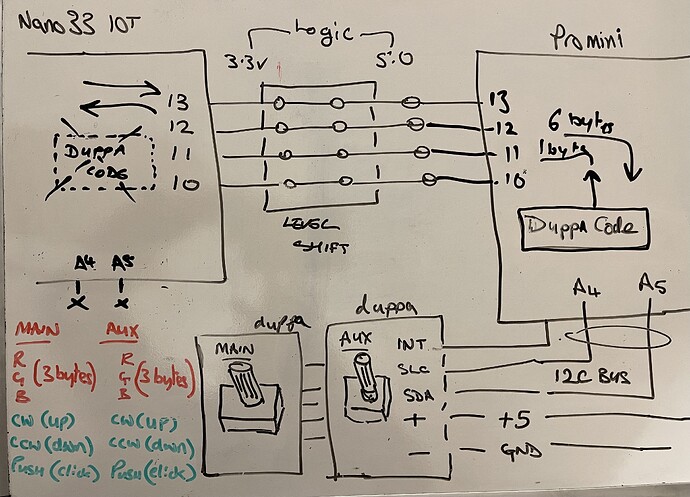 Nano 33 IOT
Logic
3.3v
5.0
Promini
13
12
11
10
DUPPA
CODE
LEVEL
SHIFT
13
12
11
10
6 bytes
1 byte
Duppa Code
A4 A5
x x
A4 A5
MAIN
R
G
B
(3 bytes)
AUX
R
G
B
(3 bytes)
CW (up)
CCW (down)
Push (click)
CW (up)
CCW (down)
Push (click)
duppa
MAIN
duppa
AUX
INT
SLC
SDA
+
-
I2C BUS
+5
GND